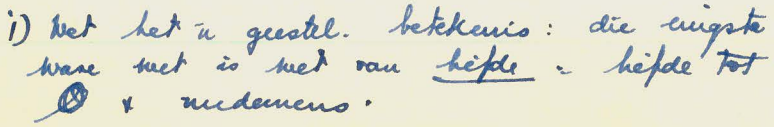 i) Wet het 'n geestel. betekenis: die enigste
ware wet is wet van liefde = liefde tot
& medemens.